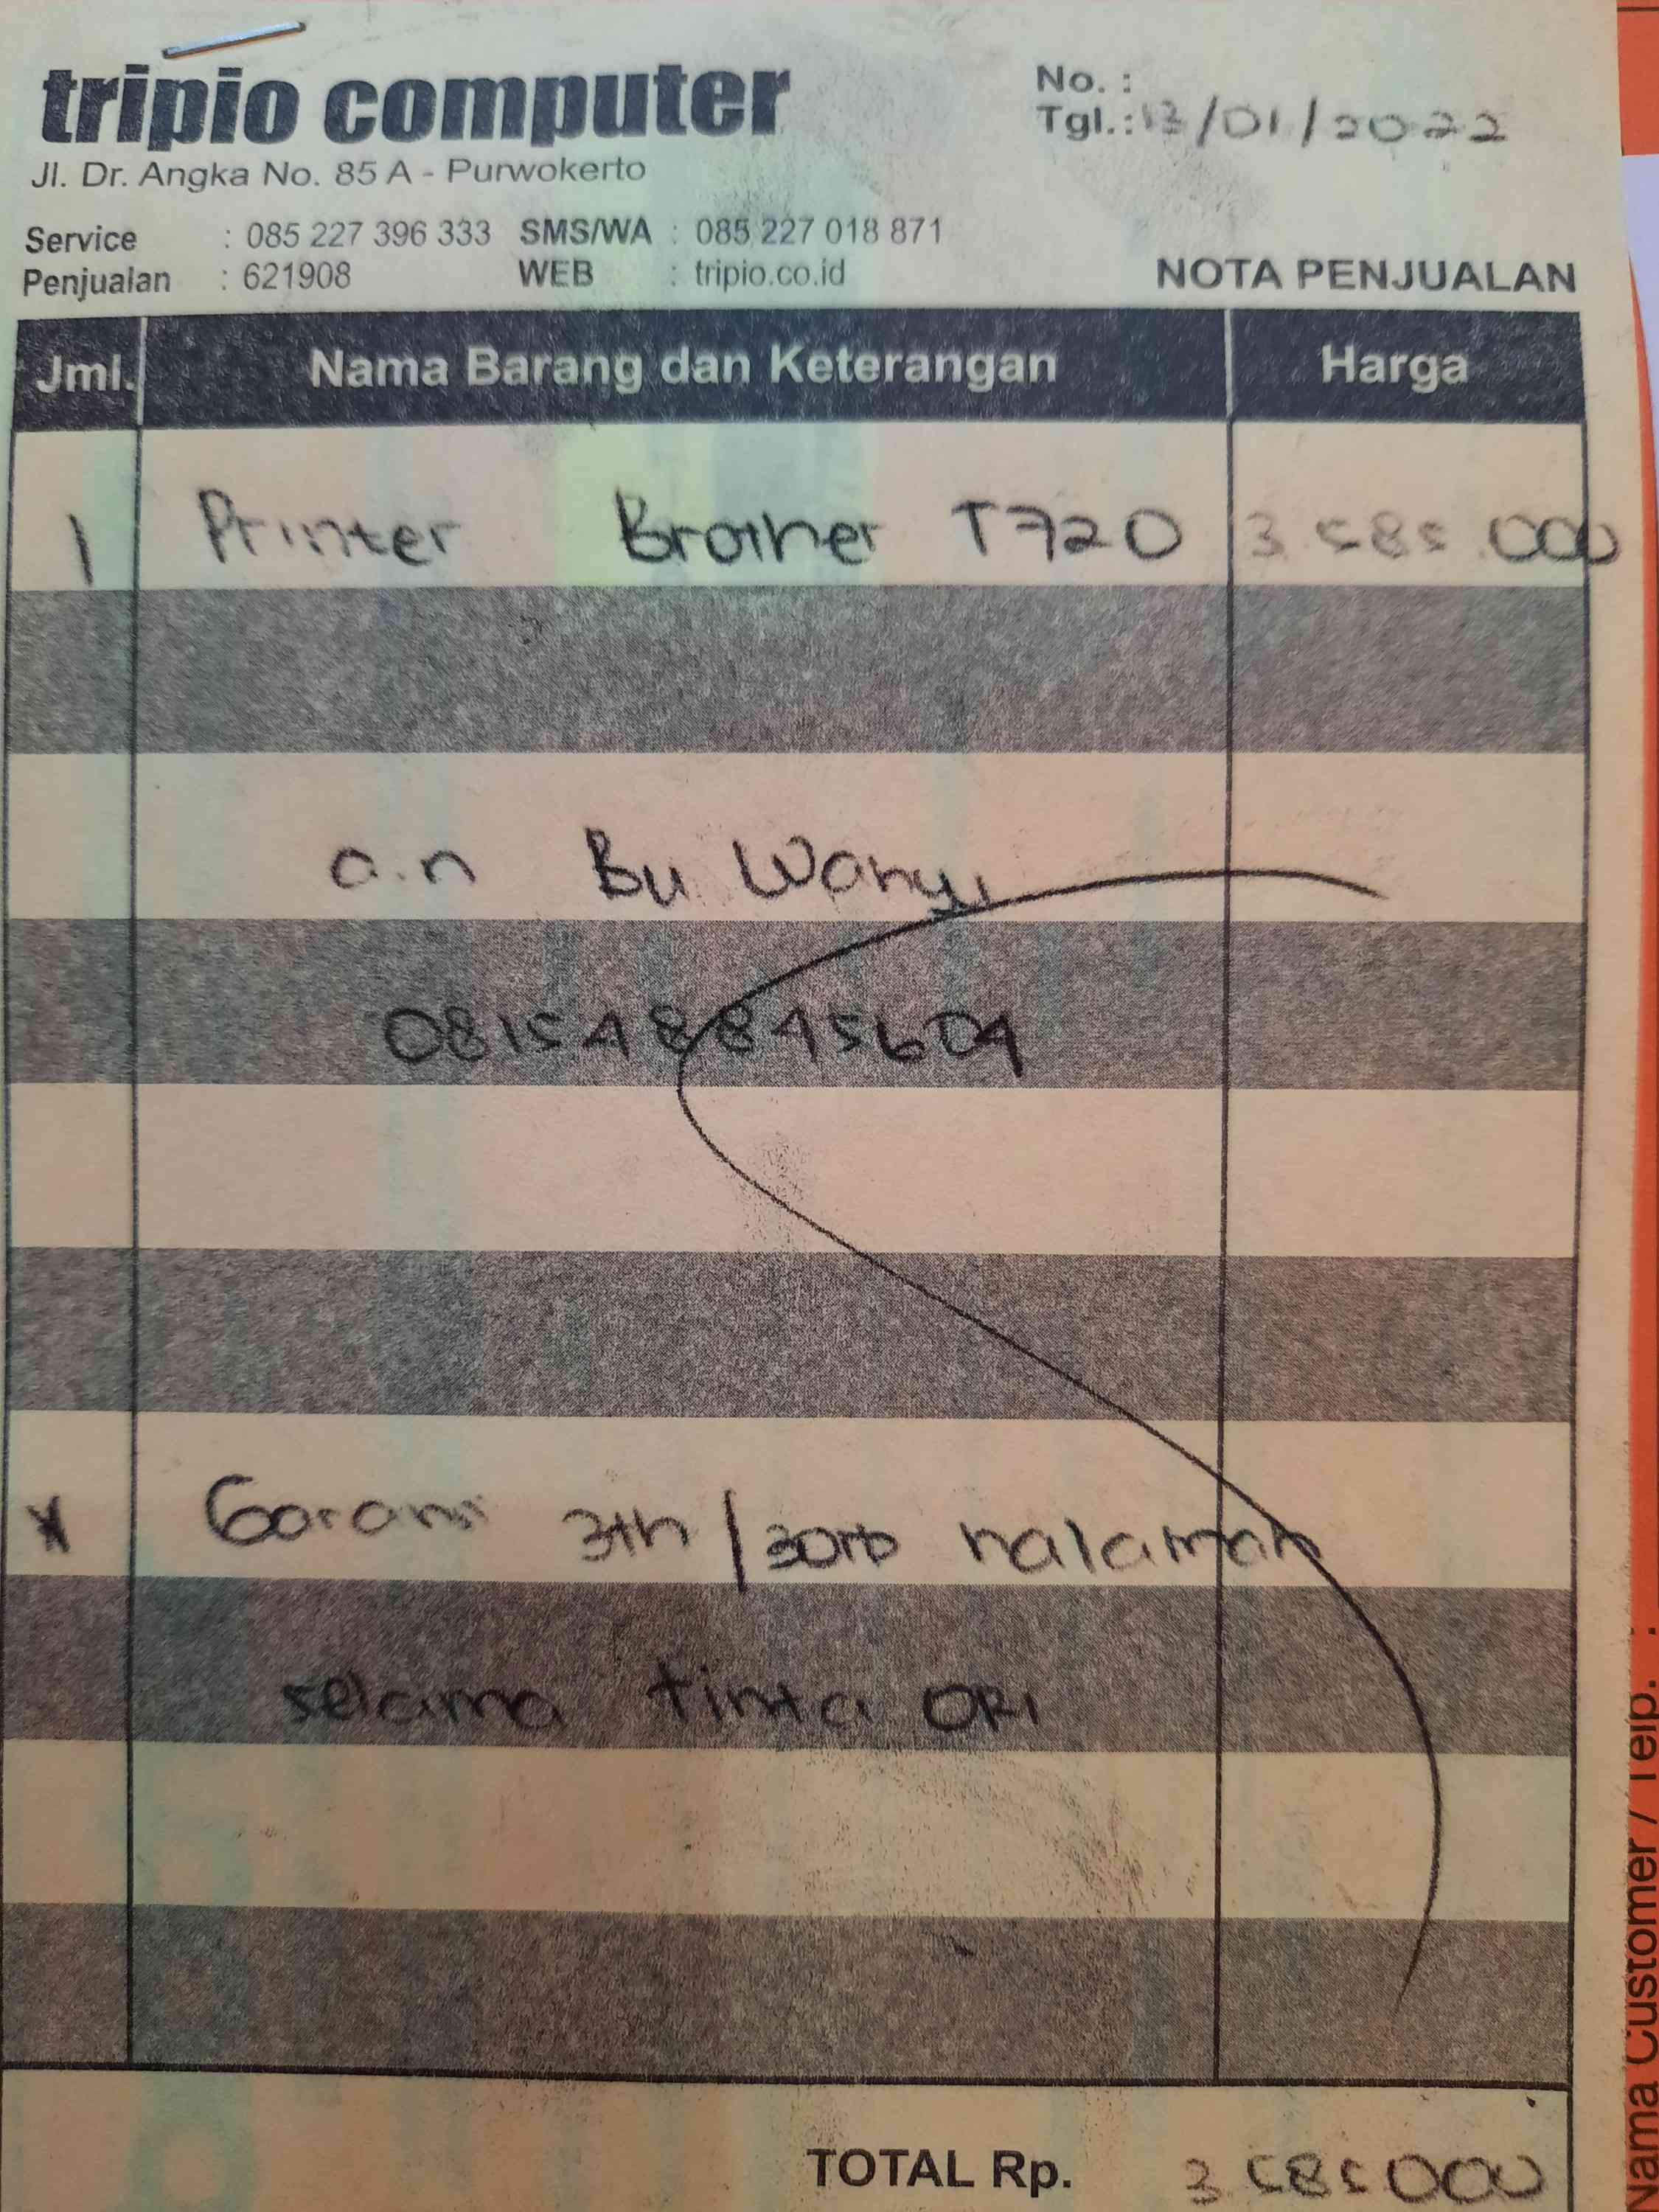 tripio computer
Jl. Dr. Angka No. 85 A - Purwokerto
No. :
Tgl.: 13/01/2022
Service : 085 227 396 333 SMS/WA : 085 227 018 871
Penjualan : 621908 WEB : tripio.co.id
NOTA PENJUALAN
Jml. Nama Barang dan Keterangan Harga
1 Printer Brother T720 3.585.000
a.n Bu Wahyu
081548845604
* Garansi 3th / 30rb halaman
selama tinta ORI
TOTAL Rp. 3.585.000
Nama Customer / Telp. :